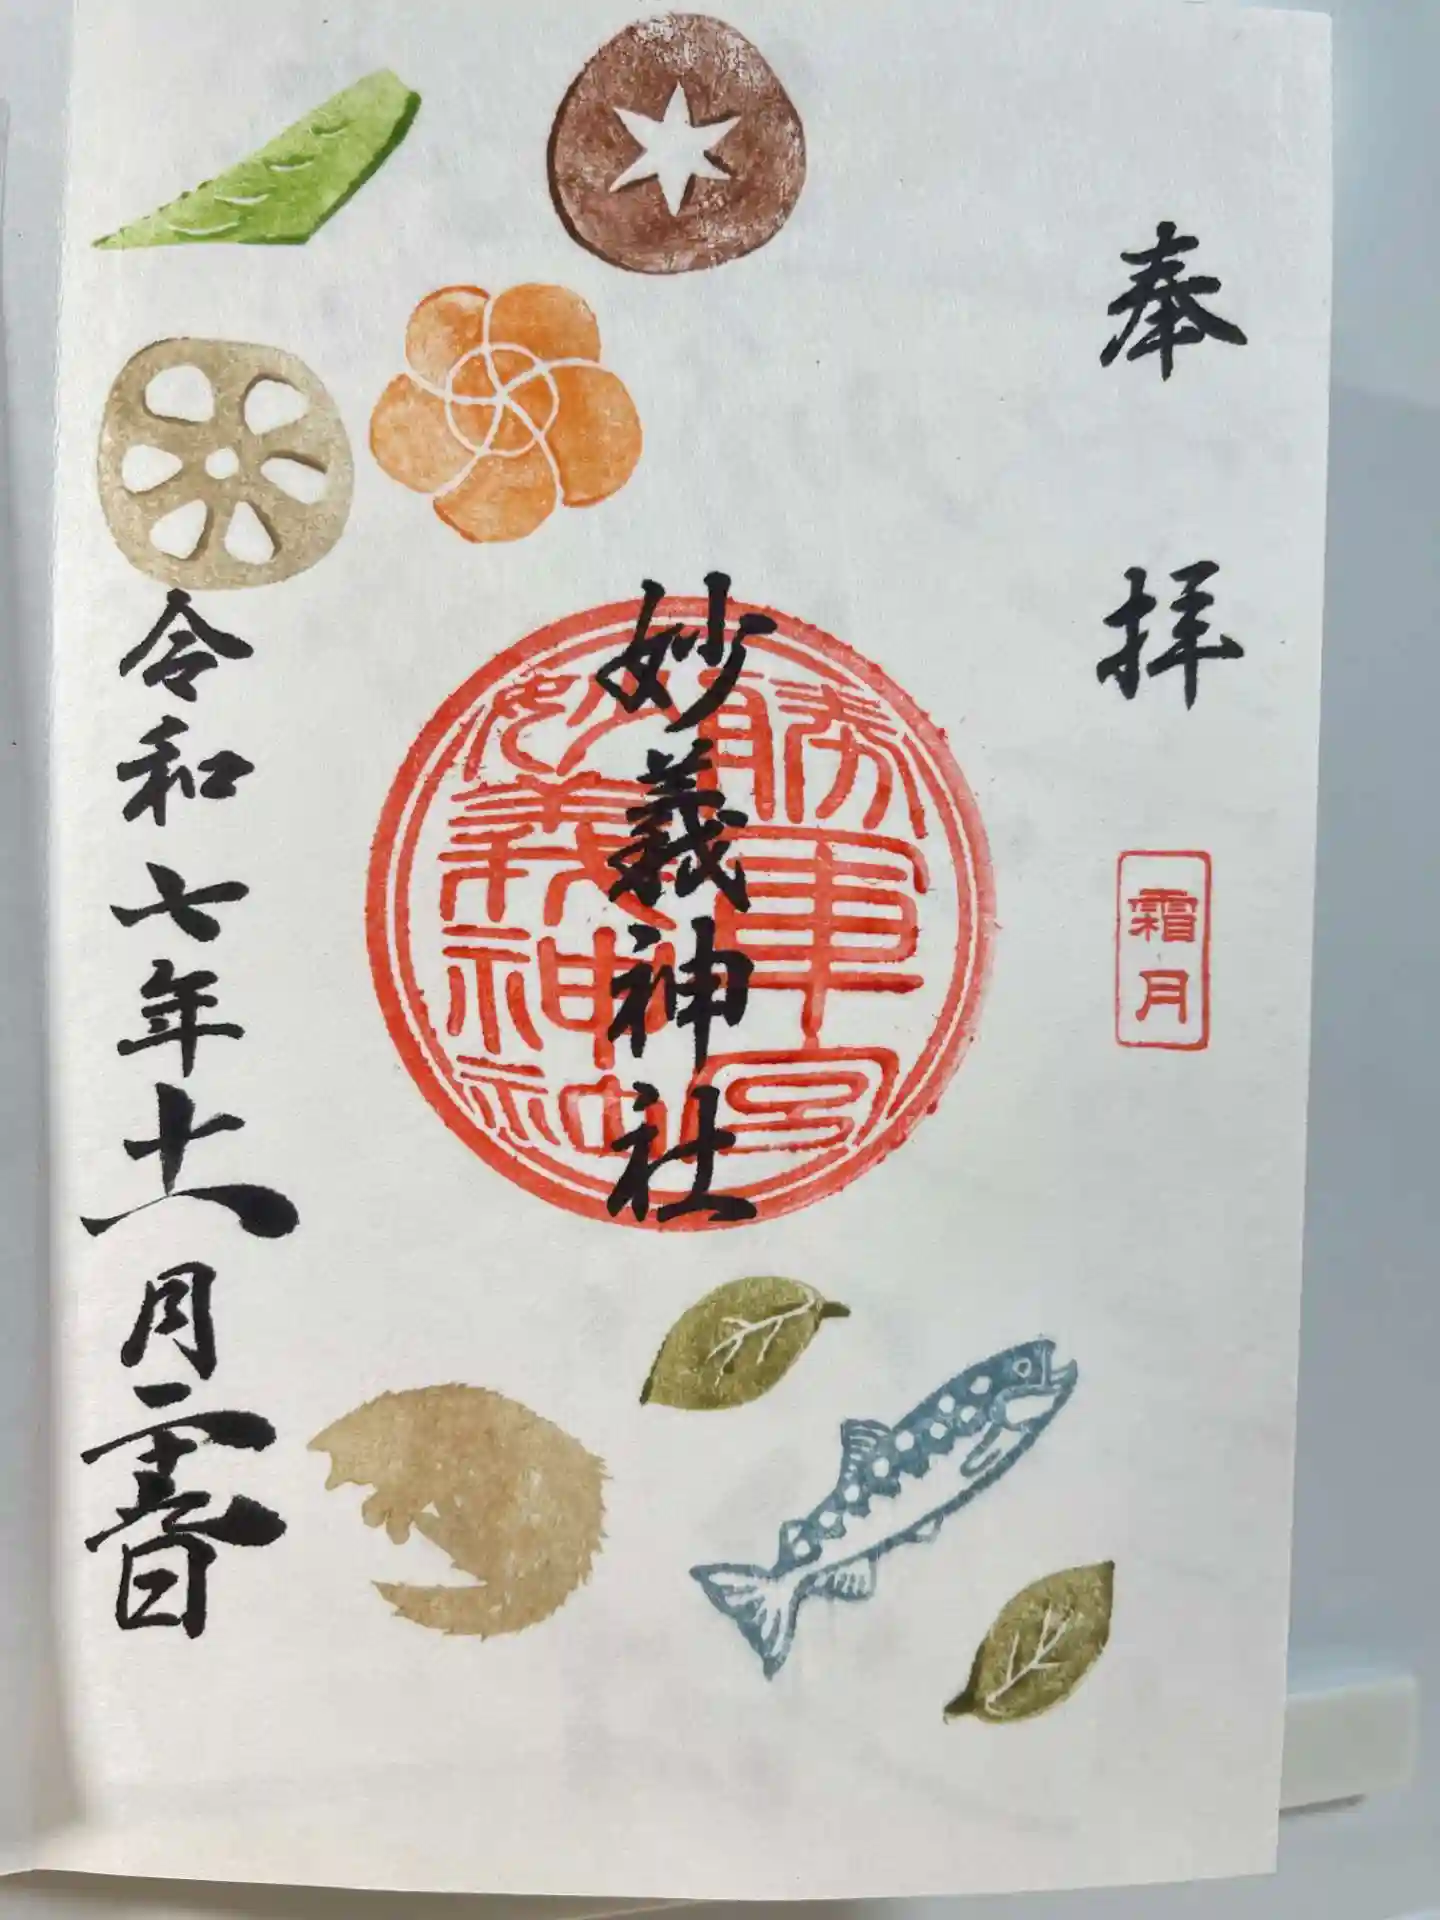 奉拝
霜月
妙義神社
勝軍宮
妙義神
令和七年十一月
日